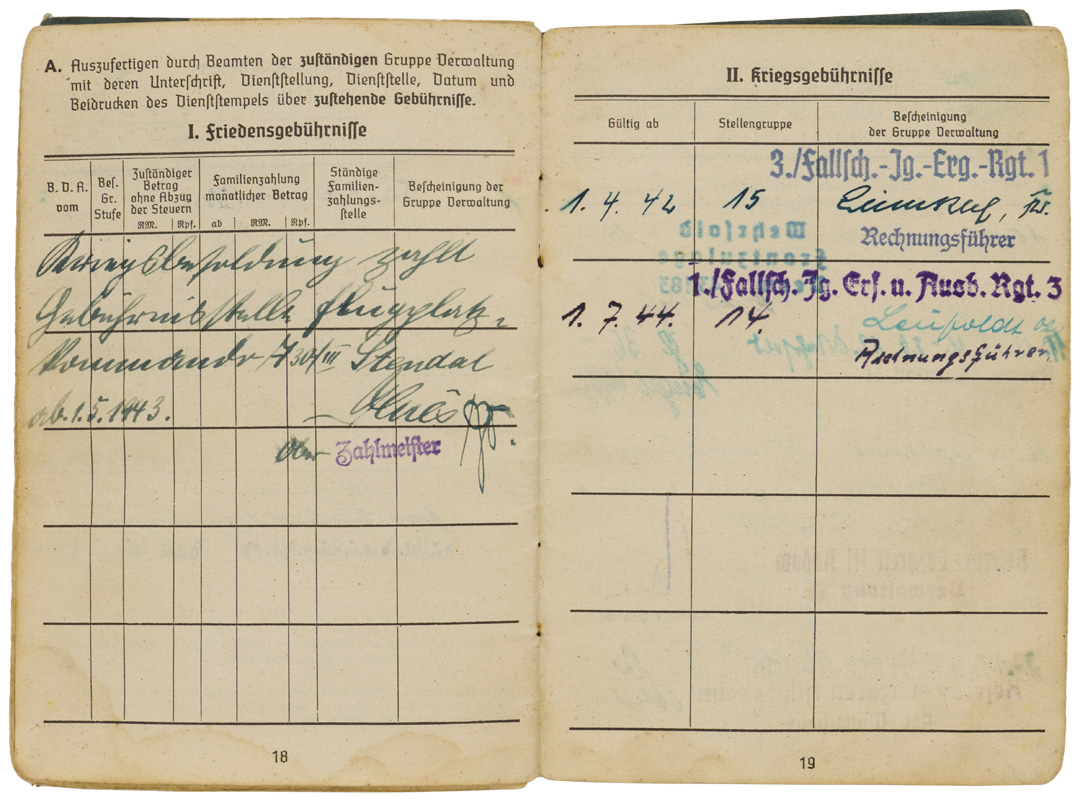 A. Auszufertigen durch Beamten der zuständigen Gruppe Verwaltung
mit deren Unterschrift, Dienststellung, Dienststelle, Datum und
Beidrucken des Dienststempels über zustehende Gebührnisse.
I. Friedensgebührnisse
B. D. A.
vom
Bes.
Gr.
Stufe
Zuständiger
Betrag
ohne Abzug
der Steuern
RM. Rpf.
Familienzahlung
monatlicher Betrag
ab RM. Rpf.
Ständige
Familien-
zahlungs-
stelle
Bescheinigung der
Gruppe Verwaltung
Kriegsbesoldung zahlt
Gebührnisstelle Flugplatz-
kommandr 30/III Stendal
ab 1.5.1943.
Zahlmeister
18
II. Kriegsgebührnisse
Gültig ab
Stellengruppe
Bescheinigung
der Gruppe Verwaltung
3./Fallsch.-Jg.-Erg.-Rgt. 1
1. 4. 42 15
Rechnungsführer
1./Fallsch. Jg. Ers. u. Ausb. Rgt. 3
1. 7. 44. 14. Leupoldt
Rechnungsführer
Wehrsold
Frontzulage
19